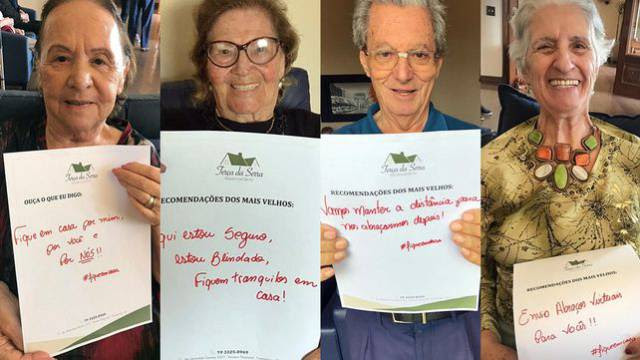 Terça da Serra
OUÇA O QUE EU DIGO:
Fique em casa por mim,
por você e
Por NÓS!!
#fiqueemcasa
Terça da Serra
RECOMENDAÇÕES DOS MAIS VELHOS:
qui estou Seguro,
estou Blindado,
Fiquem tranquilos em
casa!
19 3325-0969
Terça da Serra
RECOMENDAÇÕES DOS MAIS VELHOS:
Vamos Manter a distância para
nos abraçarmos depois!
#fiqueemcasa
Terça da Serra
RECOMENDAÇÕES DOS MAIS VELHOS:
Envio Abraços Virtuais
Para Vocês!!
#fiqueemcasa